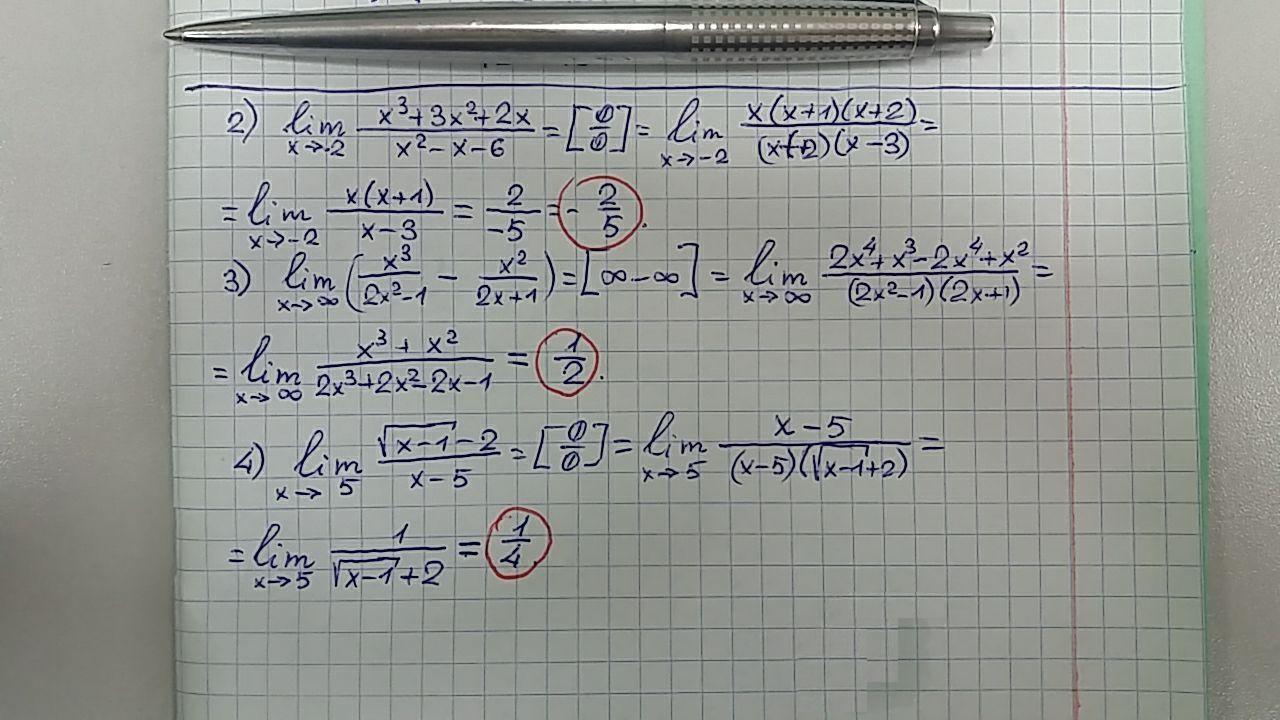 2) lim x→-2 (x³+3x²+2x)/(x²-x-6) = [0/0] = lim x→-2 (x(x+1)(x+2))/((x+2)(x-3)) =
= lim x→-2 (x(x+1))/(x-3) = 2/-5 = -2/5.
3) lim x→∞ (x³/(2x²-1) - x²/(2x+1)) = [∞-∞] = lim x→∞ (2x⁴+x³-2x⁴+x²)/((2x²-1)(2x+1)) =
= lim x→∞ (x³+x²)/(2x³+2x²-2x-1) = 1/2.
4) lim x→5 (√(x-1)-2)/(x-5) = [0/0] = lim x→5 (x-5)/((x-5)(√(x-1)+2)) =
= lim x→5 1/(√(x-1)+2) = 1/4